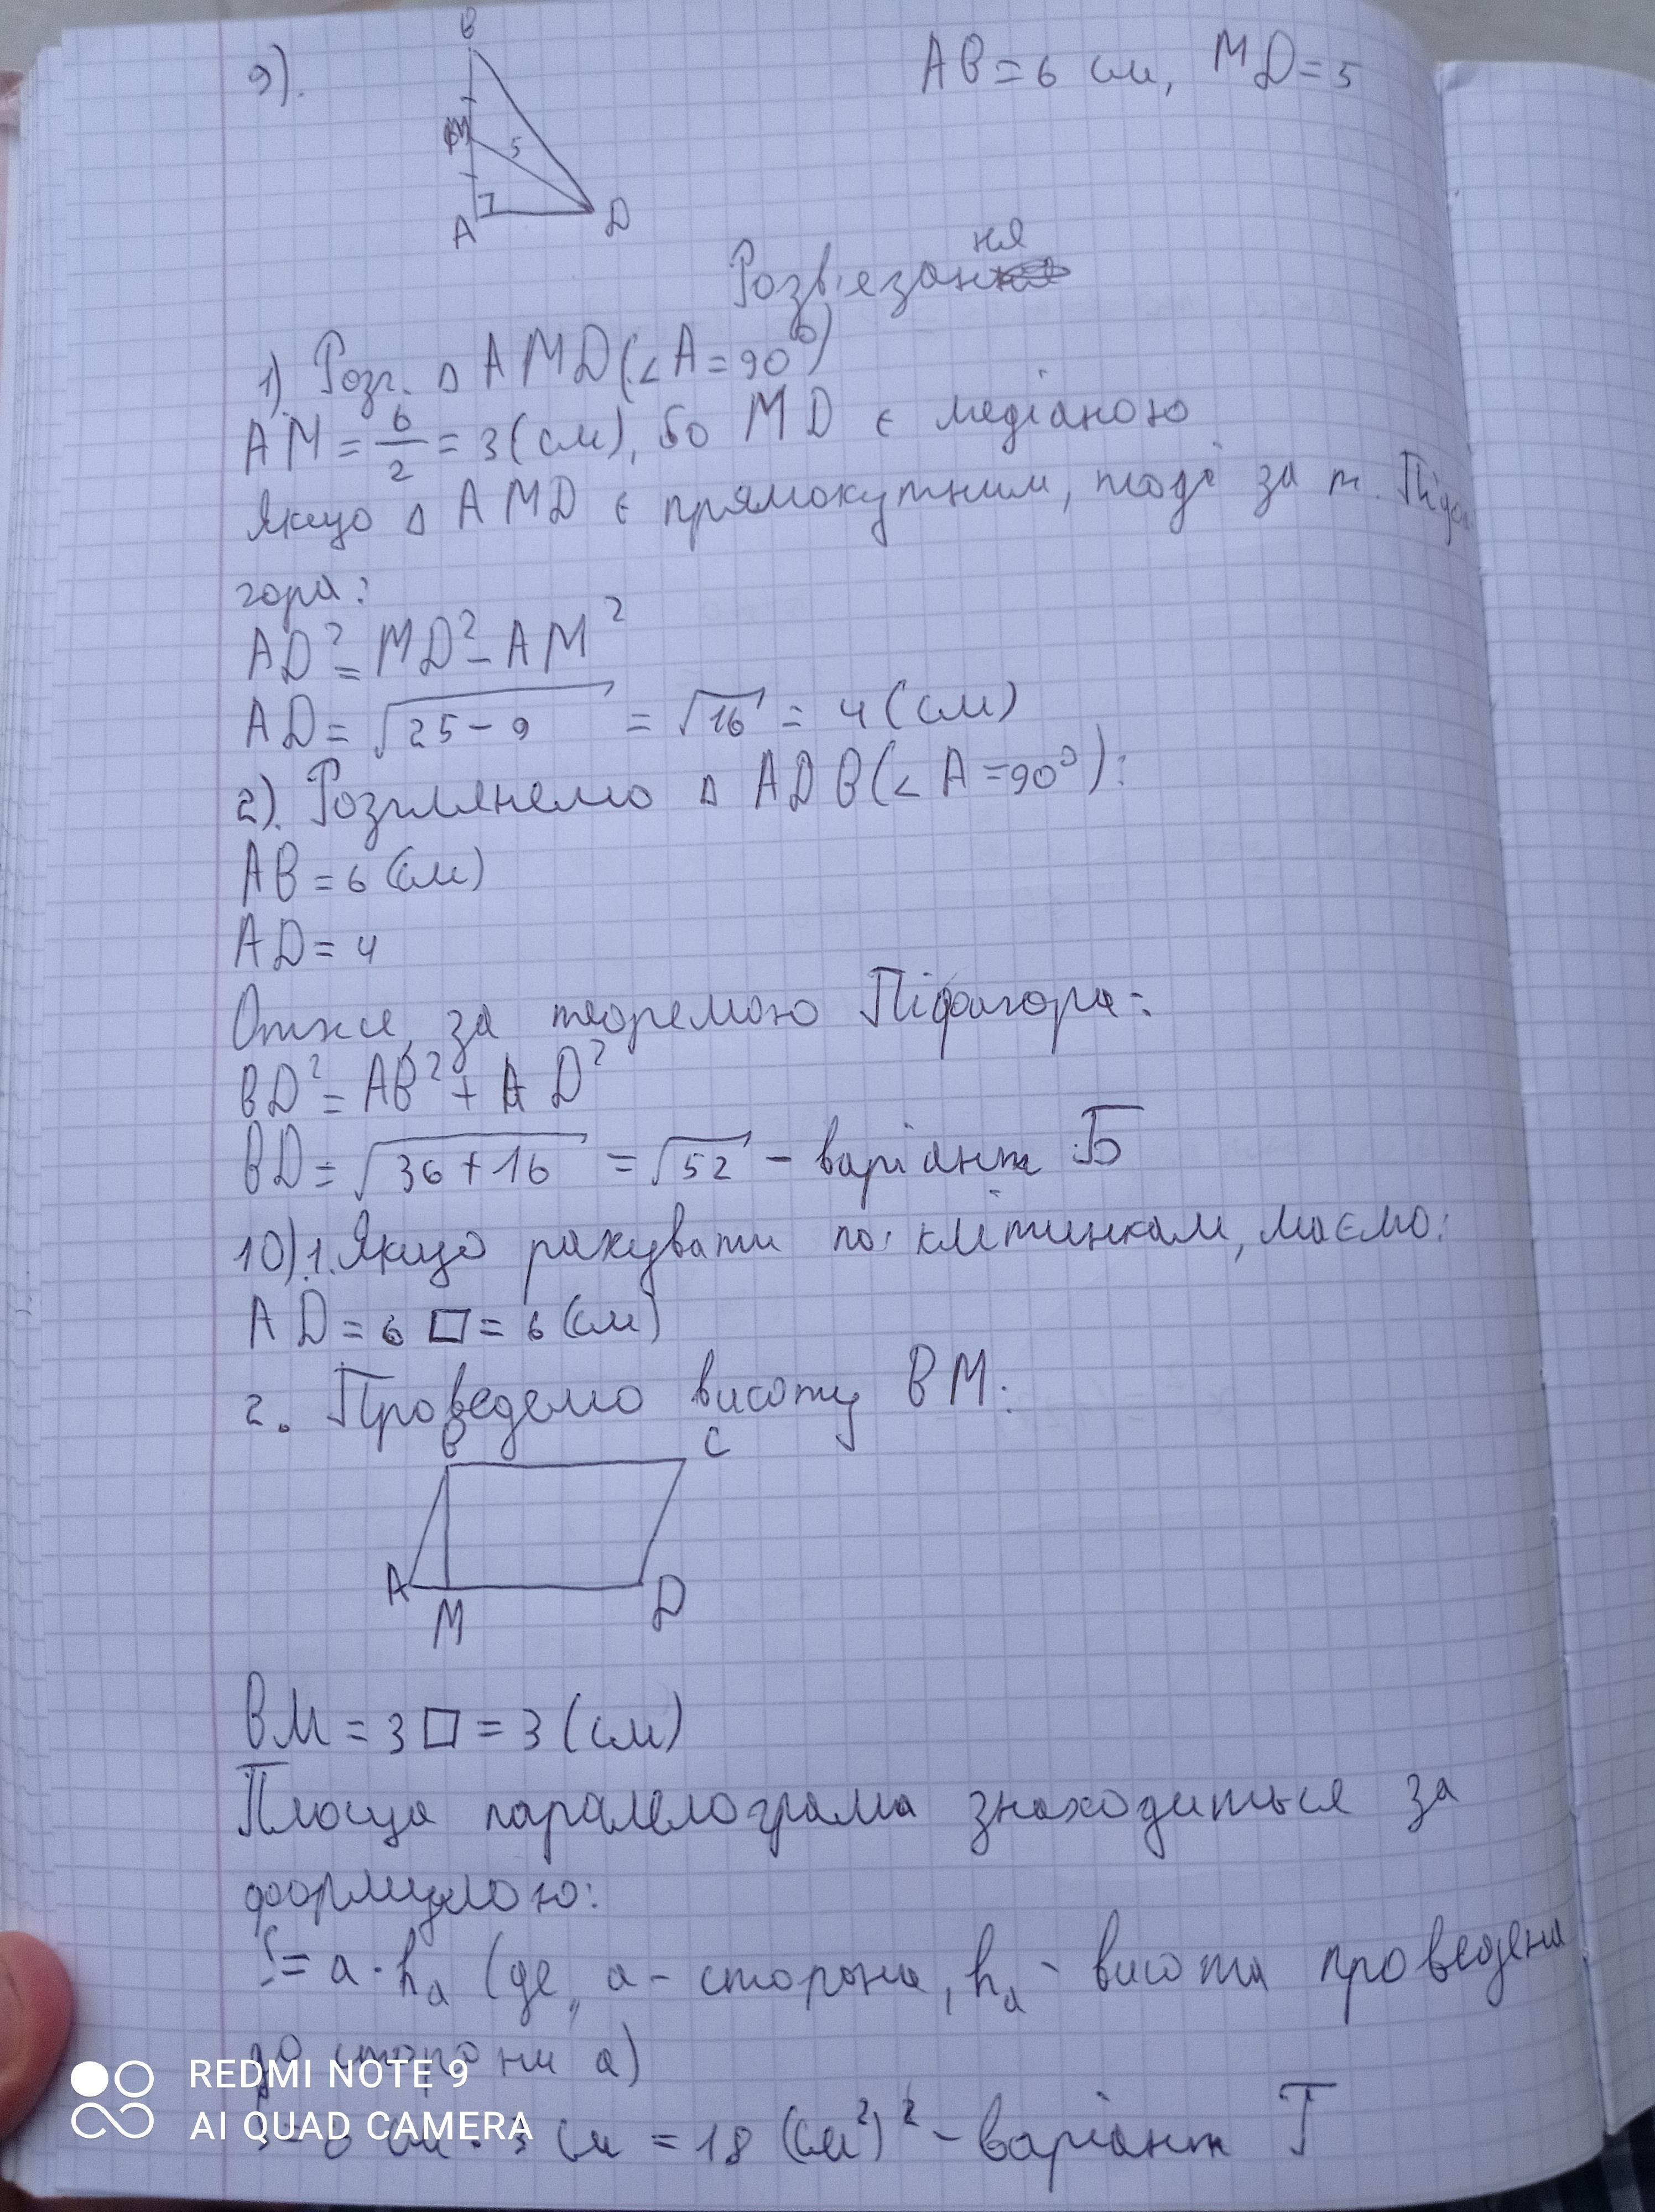 9).
B
M
5
A
D
AB = 6 см, MD = 5
Розв'езання
1) Розг. △ AMD (∠A = 90⁰)
AM = 6/2 = 3 (см), бо MD є медіаною
Якщо △ AMD є прямокутним, тоді за т. Піфа
гора:
AD² = MD² - AM²
AD = √25 - 9 = √16 = 4 (см)
2). Розглянемо △ ADB (∠A = 90⁰):
AB = 6 (см)
AD = 4
Отже, за теоремою Піфагора:
BD² = AB² + AD²
BD = √36 + 16 = √52 - варіант Б
10) 1. Якщо рахувати по клітинкам, маємо:
AD = 6 □ = 6 (см)
2. Проведемо висоту BM:
B
C
A
M
D
BM = 3 □ = 3 (см)
Площа паралелограма знаходиться за
формулою:
S = a · hₐ (де, a - сторона, hₐ - висота проведена
до сторони a)
S = 6 см · 3 см = 18 (см²)² - варіант Г
REDMI NOTE 9
AI QUAD CAMERA